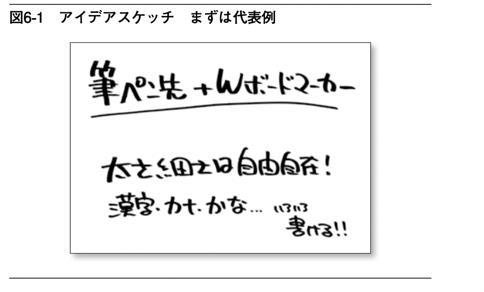 図6-1　アイデアスケッチ　まずは代表例
筆ペン先 + Wボードマーカー
太さ細さは自由自在!
漢字・カナ・かな… いろいろ
書ける!!